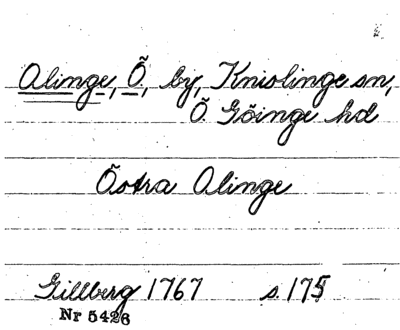 Alinge, Ö, by, Knislinge sn,
Ö. Göinge hd
Östra Alinge
Gillberg 1767 s. 175
Nr 5426